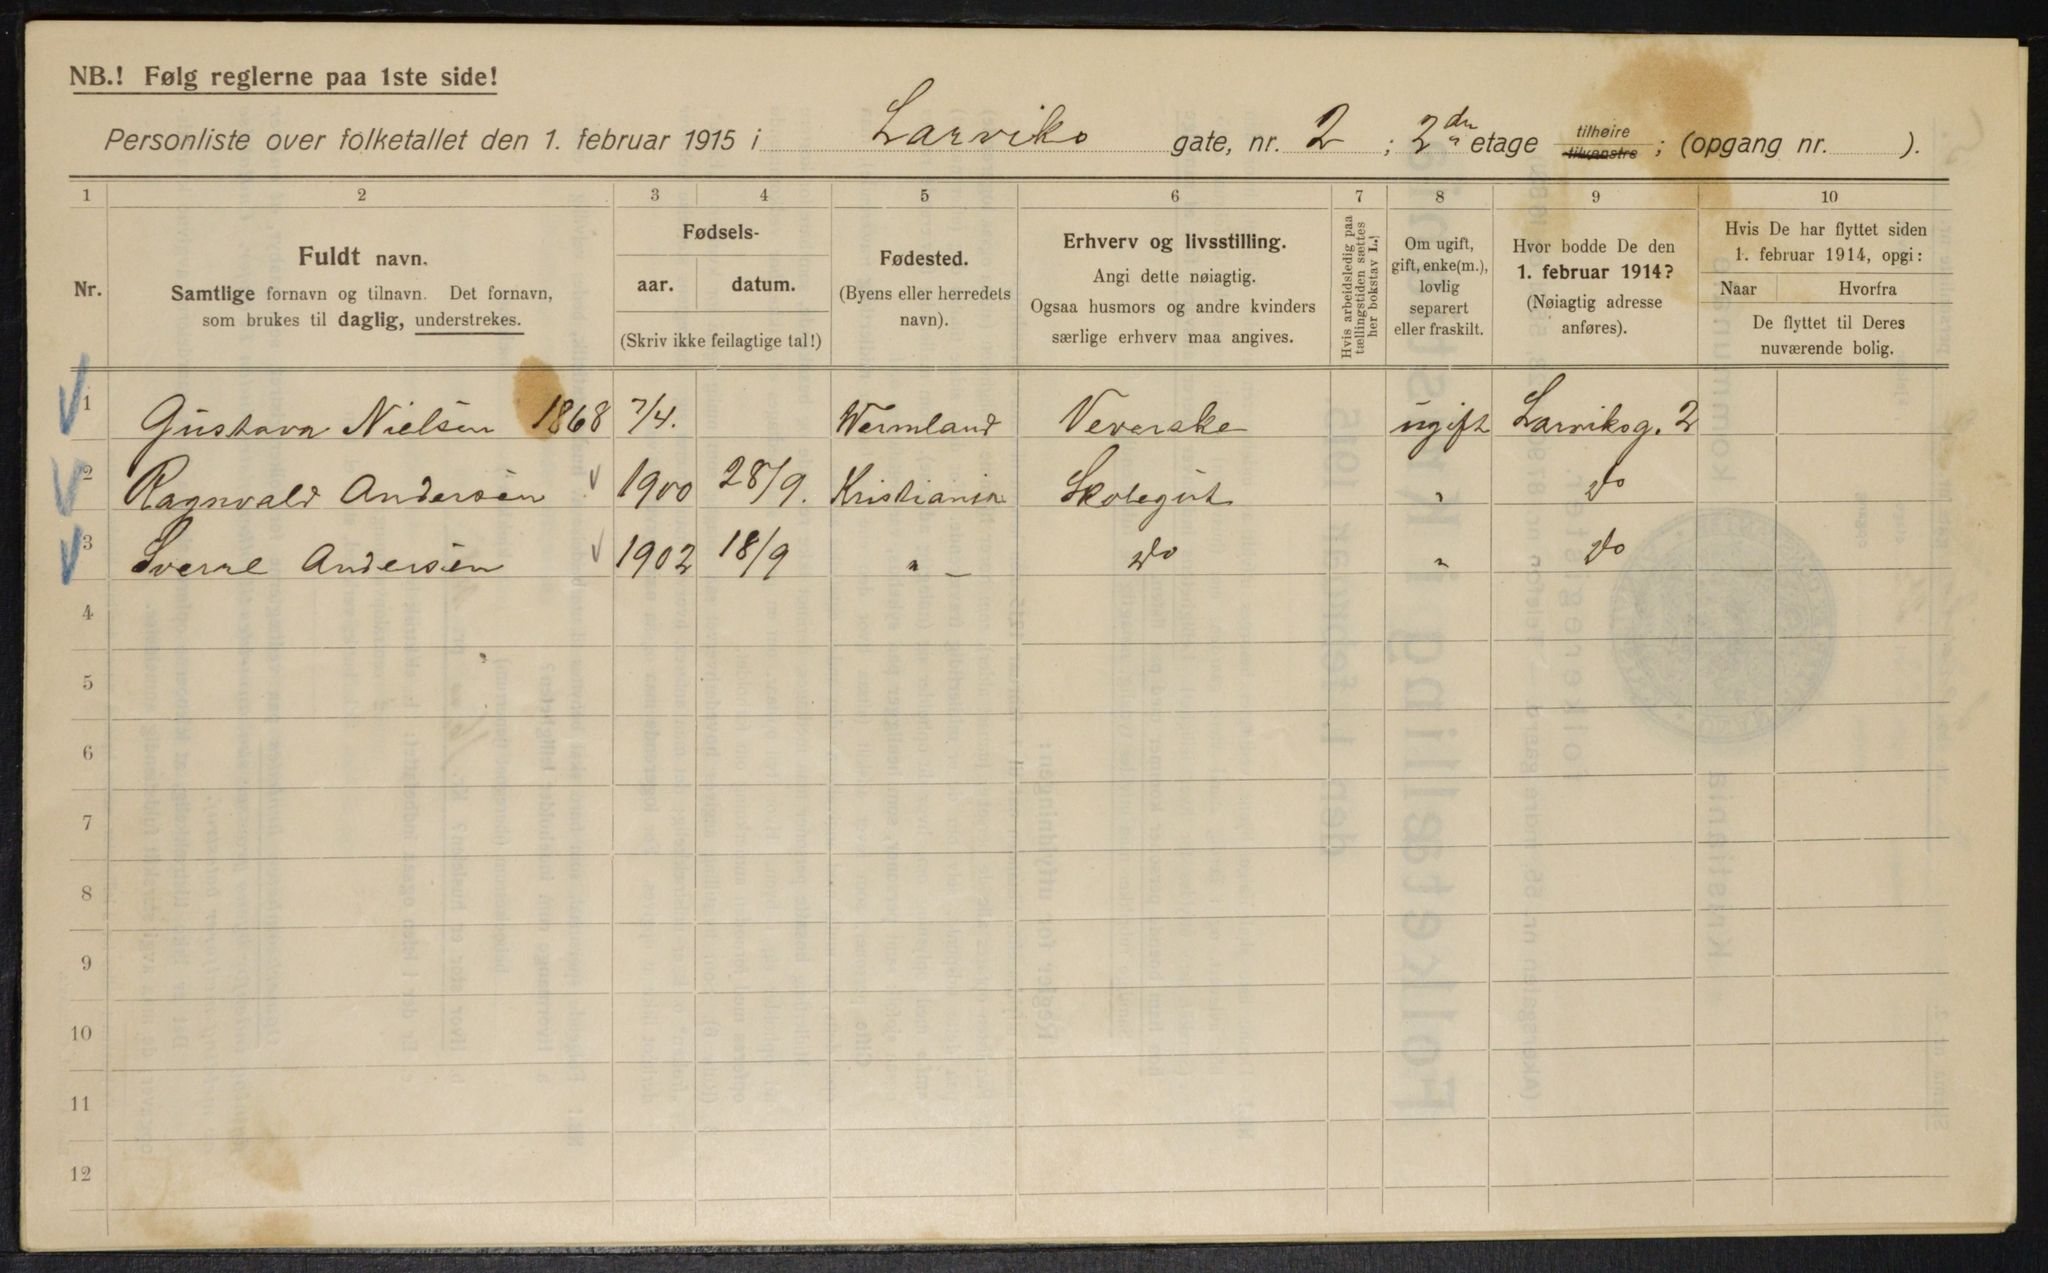 NB.! Følg reglerne paa 1ste side!
Personliste over folketallet den 1. februar 1915 i Larviks gate, nr. 2 ; 2den etage tilhøire tilvenstre ; (opgang nr. ).
1 2 3 4 5 6 7 8 9 10
Nr.
Fuldt navn.
Samtlige fornavn og tilnavn. Det fornavn,
som brukes til daglig, understrekes.
Fødsels-
aar. datum.
(Skriv ikke feilagtige tal!)
Fødested.
(Byens eller herredets
navn).
Erhverv og livsstilling.
Angi dette nøiagtig.
Ogsaa husmors og andre kvinders
særlige erhverv maa angives.
Hvis arbeidsledig paa
tællingstiden sættes
her bokstav L.!
Om ugift,
gift, enke(m.),
lovlig
separert
eller fraskilt.
Hvor bodde De den
1. februar 1914?
(Nøiagtig adresse
anføres).
Hvis De har flyttet siden
1. februar 1914, opgi:
Naar Hvorfra
De flyttet til Deres
nuværende bolig.
1 Gustava Nielsen 1868 7/4. Wermland Veverske ugift Larviksg. 2
2 Ragnvald Andersen 1900 28/9. Kristiania Skolegut " Do
3 Sverre Andersen 1902 18/9 " — Do " Do
4
5
6
7
8
9
10
11
12